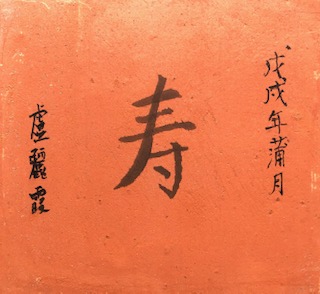 戊戌年蒲月
寿
盧麗霞